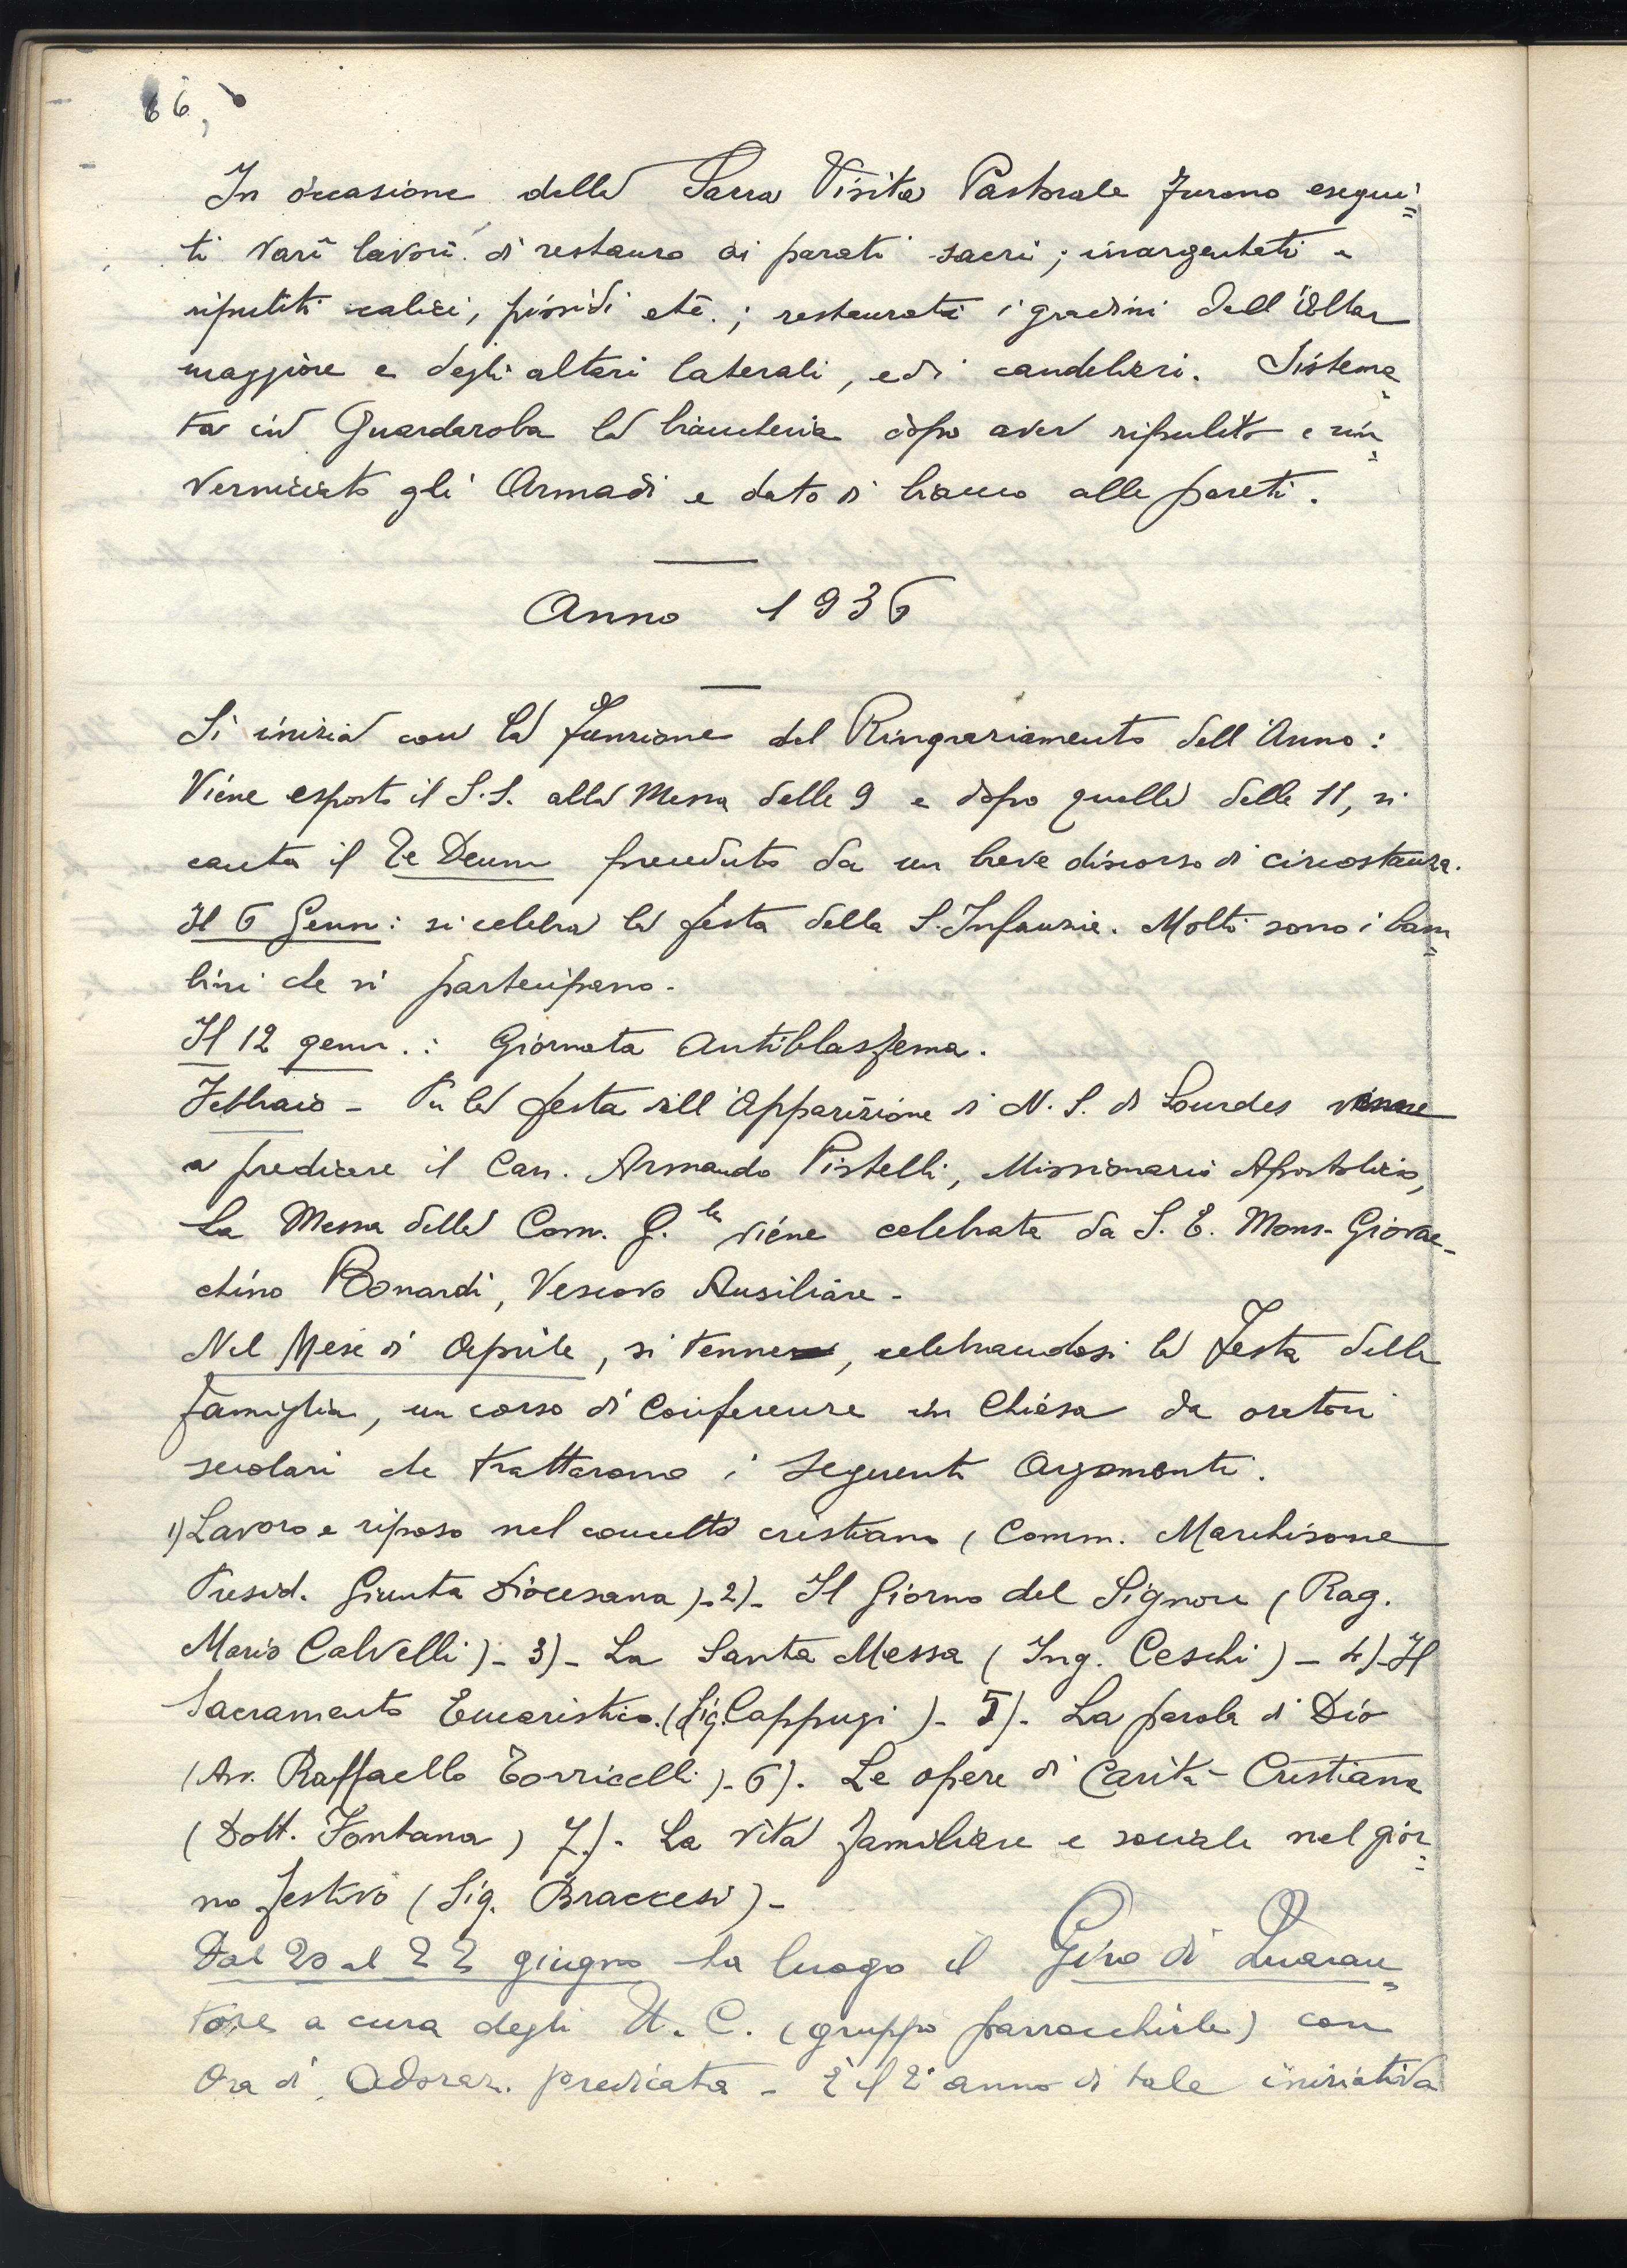 66,
In occasione della Sacra Visita Pastorale furono esegui=
ti varî lavori di restauro ai parati sacri; inargentati e
ripuliti calici, pissidi etc.; restaurati i gradini dell'Altar
maggiore e degli altari laterali, ed i candelieri. Sistema=
ta in Guardaroba la biancheria dopo aver ripulito e rin=
verniciato gli Armadi e dato di bianco alle pareti.
Anno 1936
Si inizia con la funzione del Ringraziamento dell'Anno:
Viene esposto il S.S. alla Messa delle 9 e dopo quella delle 11, si
canta il Te Deum preceduto da un breve discorso di circostanza.
Il 6 Genn: si celebra la festa della S. Infanzia. Molti sono i bam=
bini che vi partecipano.
Il 12 genn.: Giornata Antiblasfema.
Febbraio - Per la festa dell'Apparizione di N. S. di Lourdes venne
a predicare il Can. Armando Pistelli, Missionario Apostolico,
La Messa della Com. G.le viene celebrata da S. E. Mons. Giovac-
chino Bonardi, Vescovo Ausiliare.
Nel Mese di Aprile, si tenne, celebrandosi la Festa della
famiglia, un corso di Conferenze in Chiesa da oratori
secolari che trattarono i seguenti Argomenti.
1) Lavoro e riposo nel concetto cristiano (Comm. Marchisone
Presid. Giunta Diocesana) - 2) - Il Giorno del Signore (Rag.
Mario Calvelli) - 3) - La Santa Messa (Ing. Ceschi) - 4) - Il
Sacramento Eucaristico. (Sig. Cappugi) - 5) - La parola di Dio
(Av. Raffaello Torricelli) - 6) - Le opere di Carità Cristiana
(Dott. Fontana) 7) - La vita familiare e sociale nel gior=
no festivo (Sig. Braccesi) -
Dal 20 al 22 giugno ha luogo il Giro di Quaran=
tore a cura degli U. C. (gruppo parrocchiale) con
Ora di Adoraz. predicata - È il 2° anno di tale iniziativa